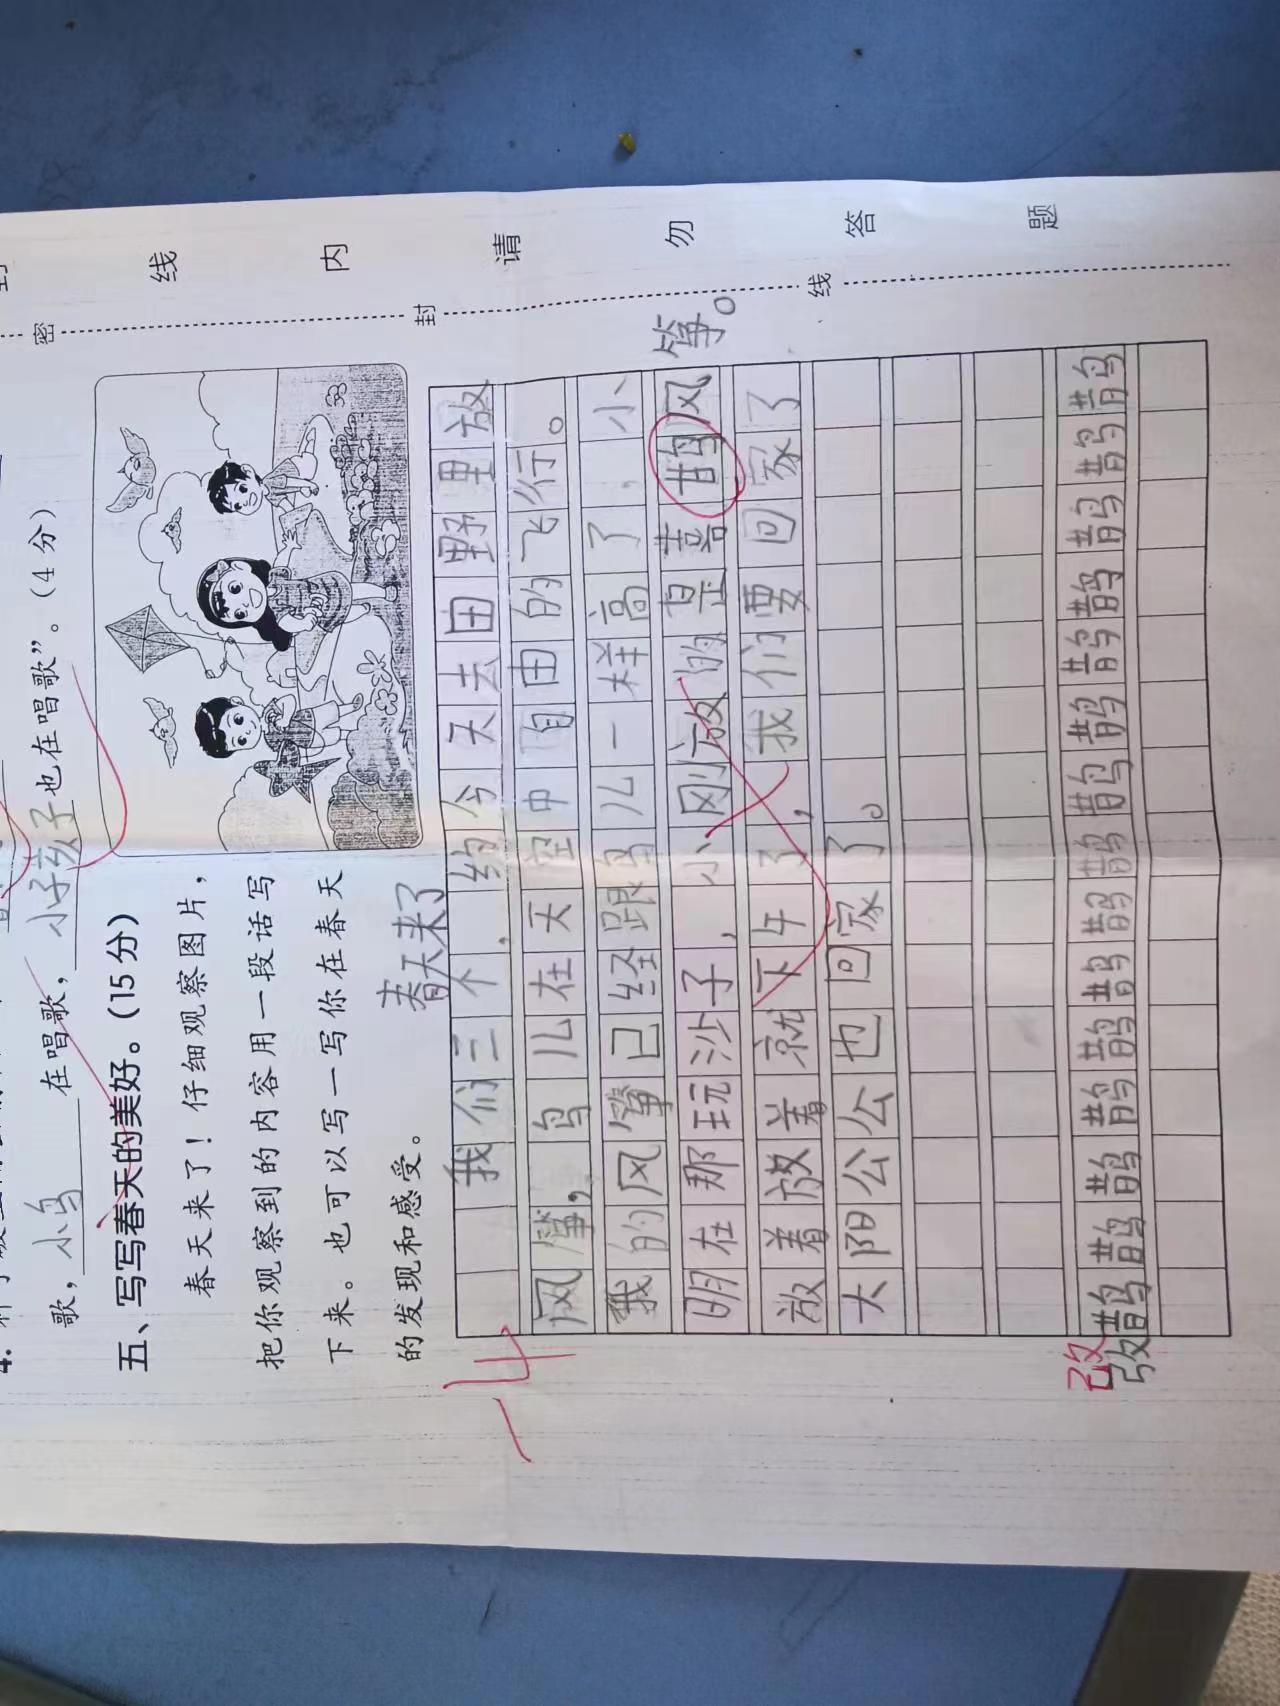 密 封 线
线 内 请 勿 答 题
歌，小鸟在唱歌，小孩子也在唱歌”。（4 分）
五、写写春天的美好。（15 分）
春天来了！仔细观察图片，
把你观察到的内容用一段话写
下来。也可以写一写你在春天
的发现和感受。
春天来了
14
我们三个，约今天去田野里放
风筝，鸟儿在天空中自由的飞行。
我的风筝已经跟鸟儿一样高了，小
明在那玩沙子，小刚放的是喜鹊风
筝。
放着放着就下午了，我们要回家了
太阳公公也回家了。
改鹊鹊鹊鹊鹊鹊鹊鹊鹊鹊鹊鹊鹊鹊鹊
改